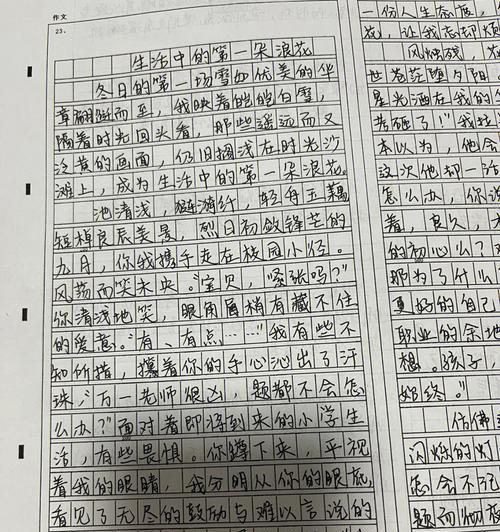 作文
23.
生活中的第一朵浪花
冬日的第一场雪如优美的华
章翩跹而至，我映着皑皑白雪，
隔着时光回头看，那些遥远而又
泛黄的画面，仍旧搁浅在时光沙
滩上，成为生活中的第一朵浪花。
池清浅，涟漪纤，轻舟玉藕
短棹良辰美景，烈日初敛锋芒的
九月，你我携手走在校园小径。
风荡而笑未央。“宝贝，紧张吗？”
你清浅地笑，眼角眉梢有藏不住
的爱意。“有、有点……”我有些不
知所措，攥着你的手心沁出了汗
珠，“万一老师很凶，题都不会怎
么办？”面对着即将到来的小学生
活，有些畏惧。你蹲下来，平视
着我的眼睛，我分明从你的眼底，
看见了无尽的鼓励与难以言说的
一份人生态度，
花，让我忘却烦
风烛残，
世苍茫堕夕阳
星光洒在我的
考砸了！”我
本以为，他会
这次他却一话
怎么办，你说
着，良久，
的初心么？
那为了什么
更好的自己
职业的余地
想。孩子，
如始终。”
仿佛
闪烁的灯
会不记
题而